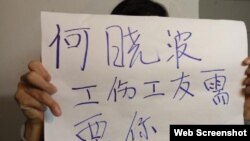 何晓波
工伤工友需
要你
Web Screenshot